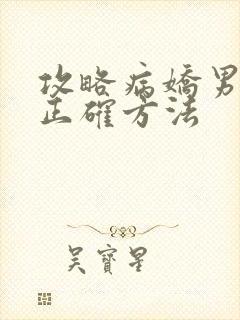 攻略病嬌男
正確方法
吳寶星